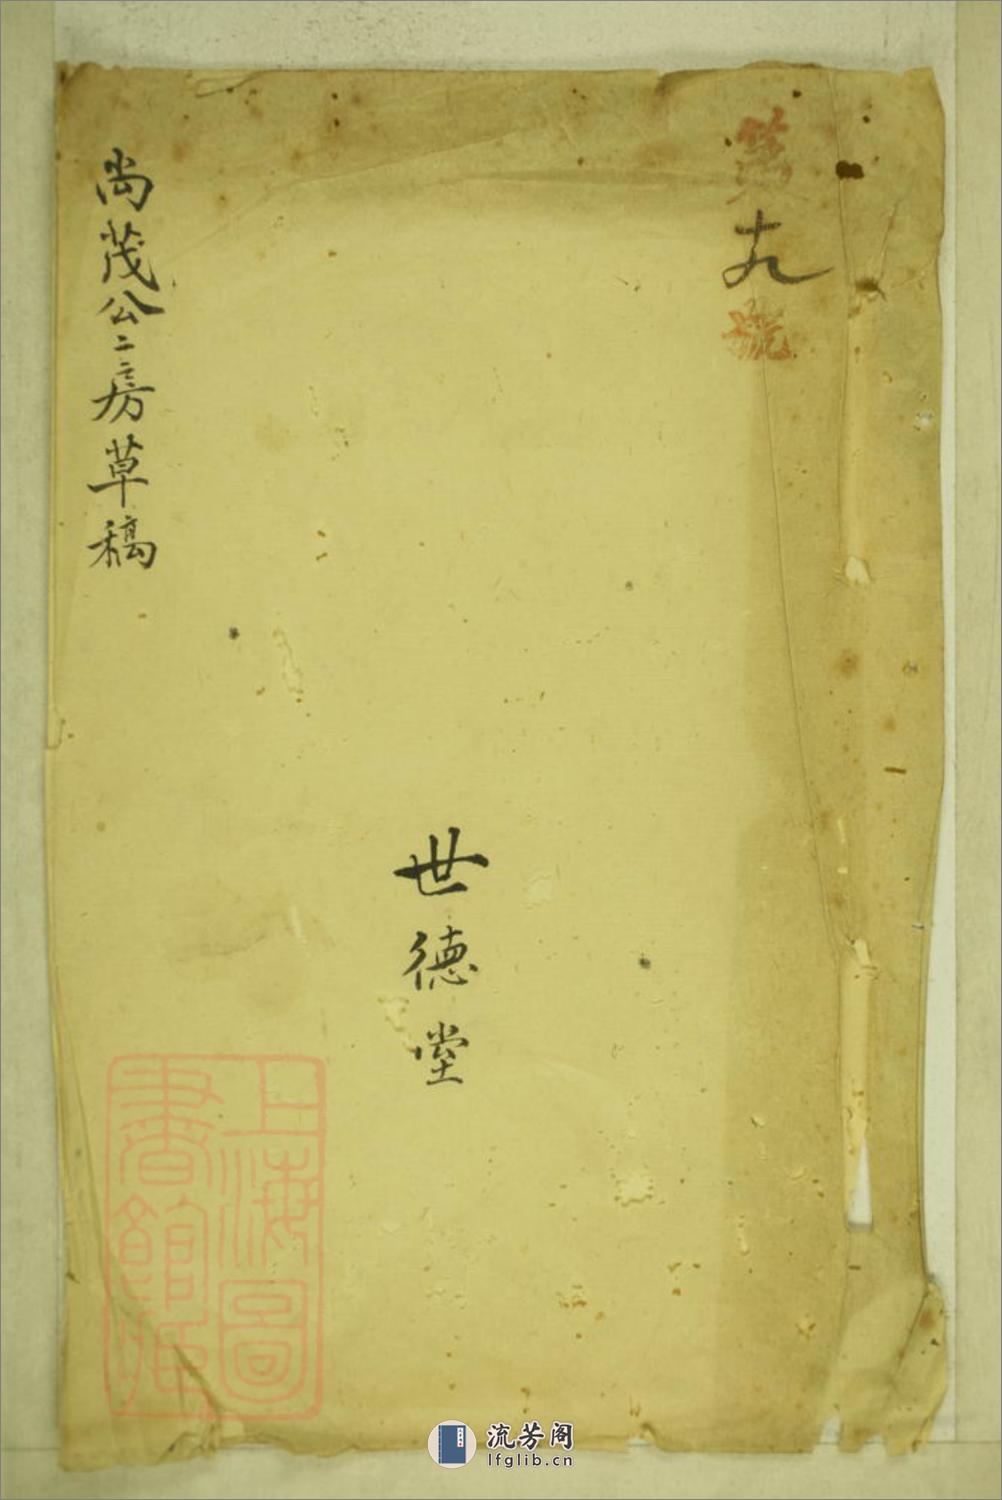 第
十九
號
世德堂
尚茂公二三房草稿
上海圖
書館藏
流芳阁
lfglib.cn